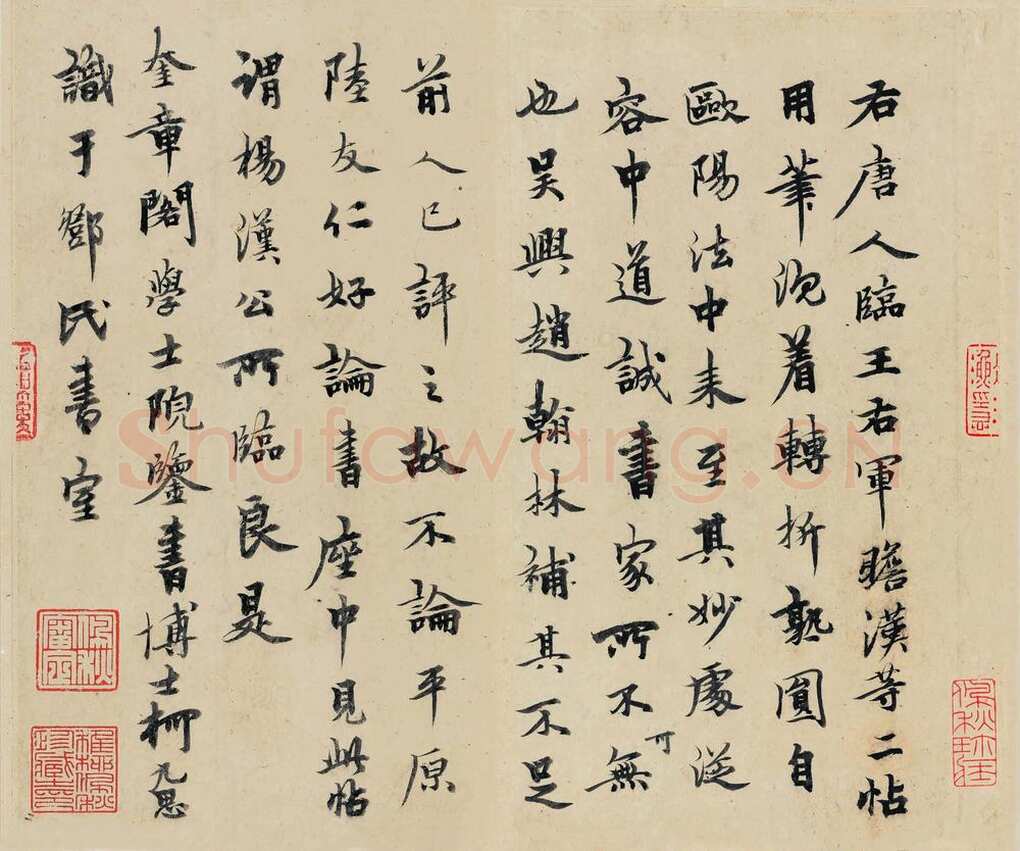 右唐人臨王右軍瞻漢等二帖
用筆沉着轉折熟圓自
歐陽法中来至其妙處從
容中道誠書家所不可無
也吳興趙翰林補其不足
前人已評之故不論平原
陸友仁好論書座中見此帖
謂楊漢公所臨良是
奎章閣學士院鑒書博士柯九思
識于鄧氏書室
Shufawang.CN